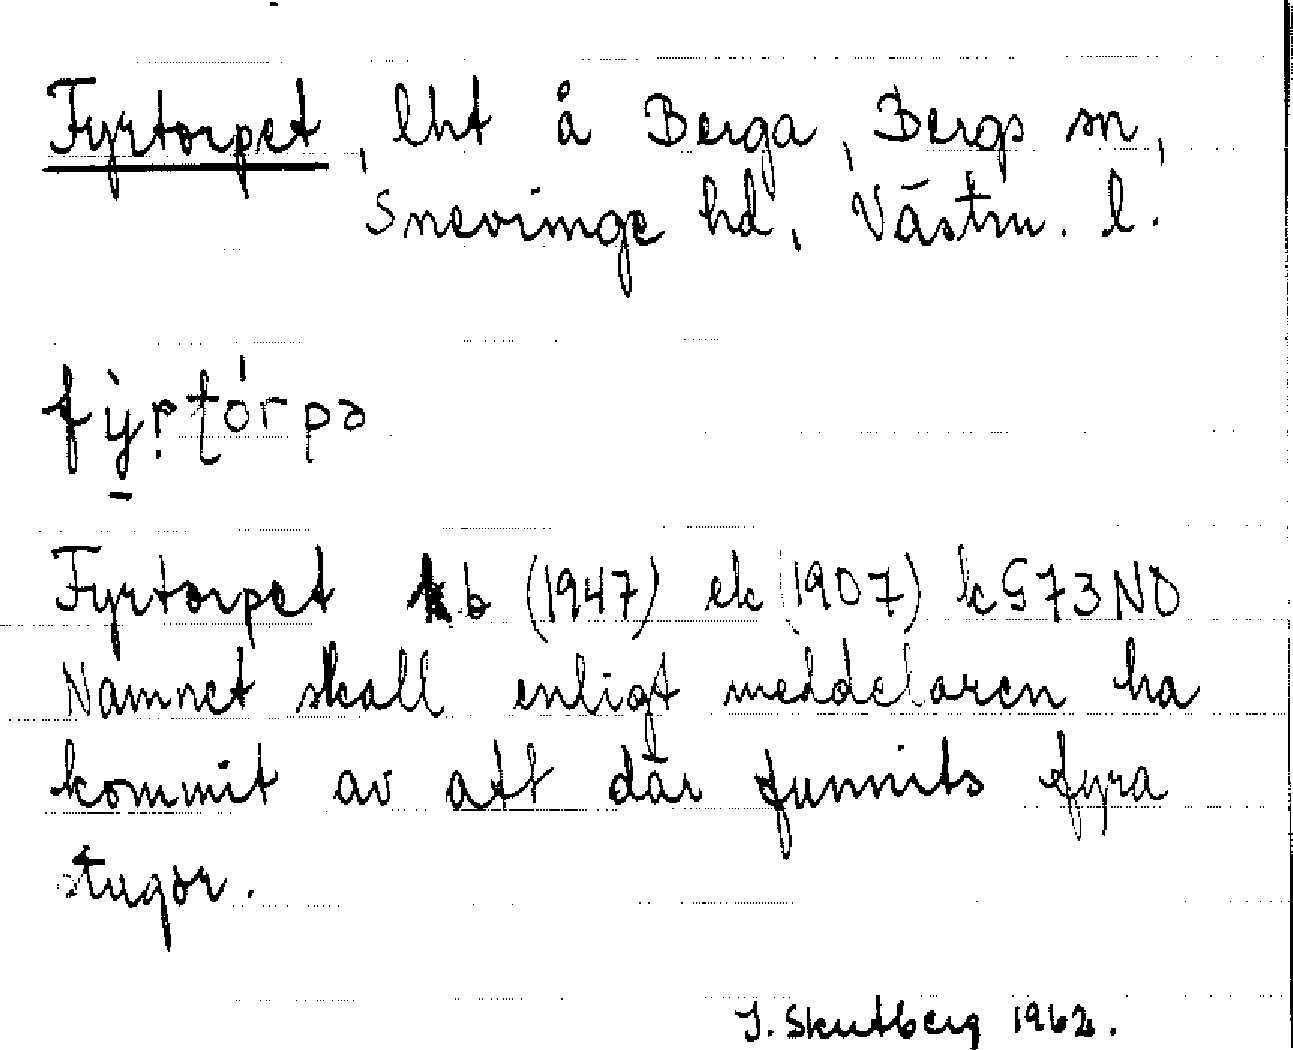 Fyrtorpet, lht å Berga, Bergs sn,
Snevringe hd, Västm. l.
fỳṛţórpə
Fyrtorpet kb (1947) ek (1907) kG73NO
Namnet skall enligt meddelaren ha
kommit av att där funnits fyra
stugor.
J. Skutberg 1962.